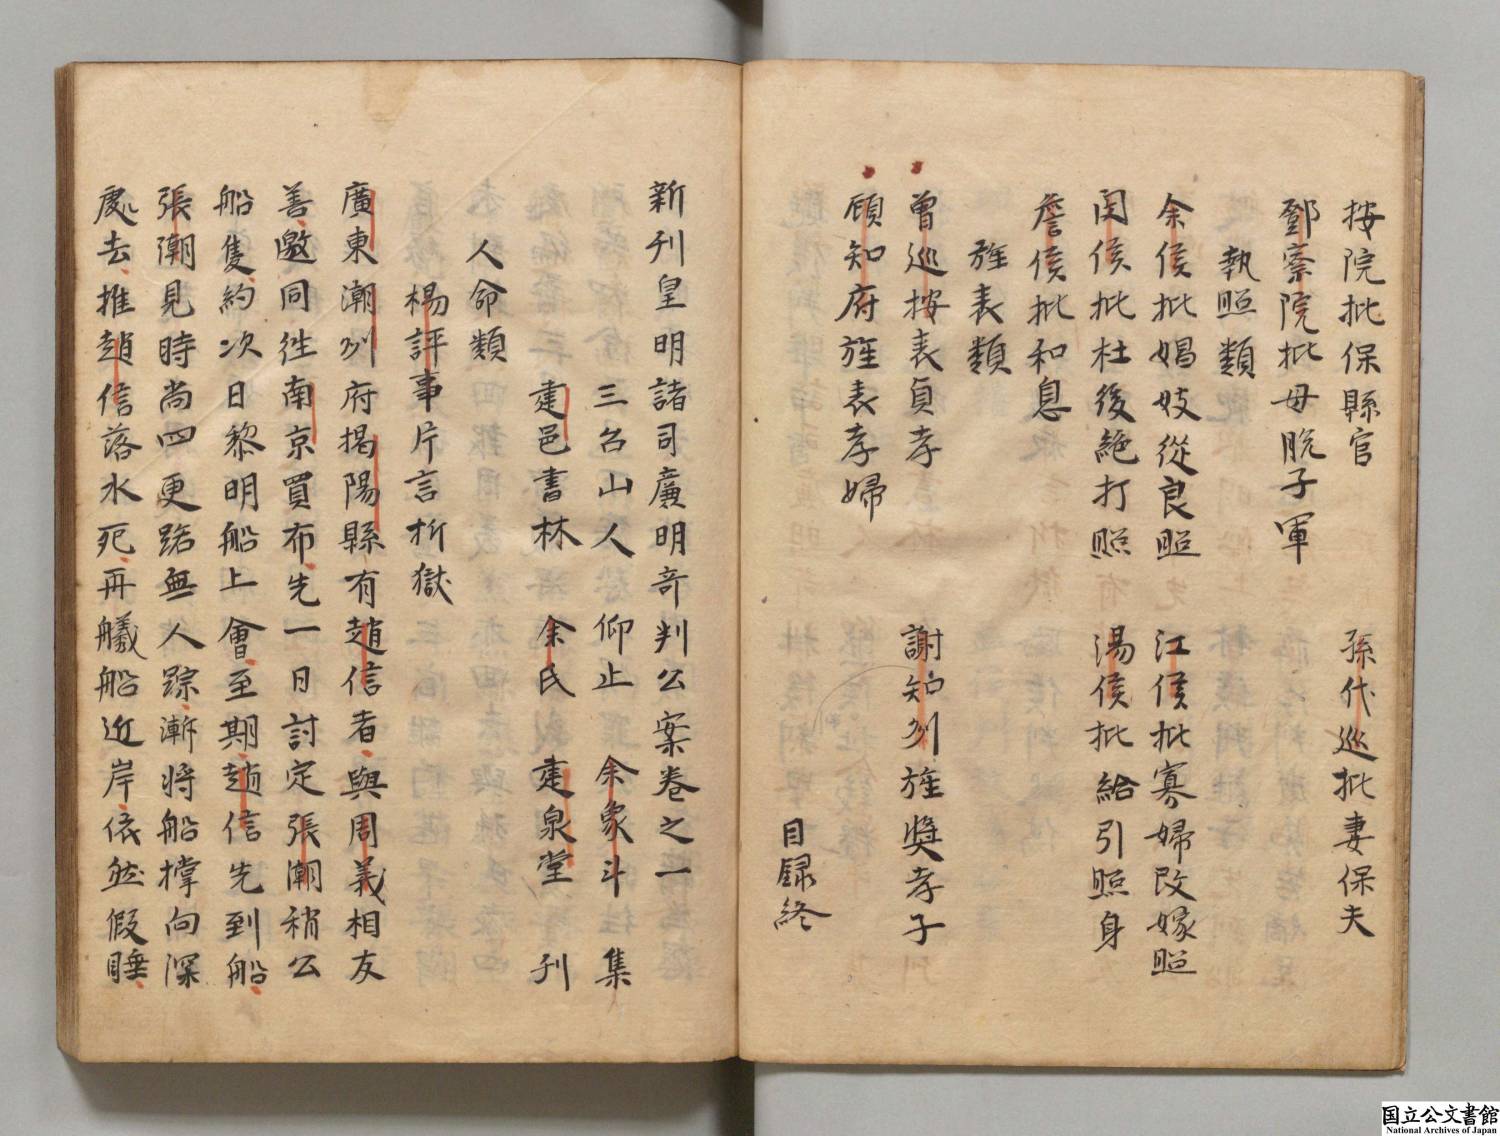 按院批保縣官　孫代巡批妻保夫
鄧察院批母脱子軍
執照類
余侯批娼妓從良照　江侯批寡婦改嫁照
閔侯批杜後絶打照　湯侯批給引照身
詹侯批和息
旌表類
曾巡按表貞孝　謝知州旌奬孝子
顧知府旌表孝婦
目録終
新刊皇明諸司廉明奇判公案卷之一
三台山人　仰止　余象斗　集
建邑書林　余氏　建泉堂　刊
人命類
楊評事片言折獄
廣東潮州府揭陽縣有趙信者與周義相友
善邀同徃南京買布先一日討定張潮稍公
船隻約次日黎明船上會至期趙信先到船
張潮見時尚四更路無人踪漸將船撑向深
處去推趙信落水死再艤船近岸依然假睡
国立公文書館
National Archives of Japan